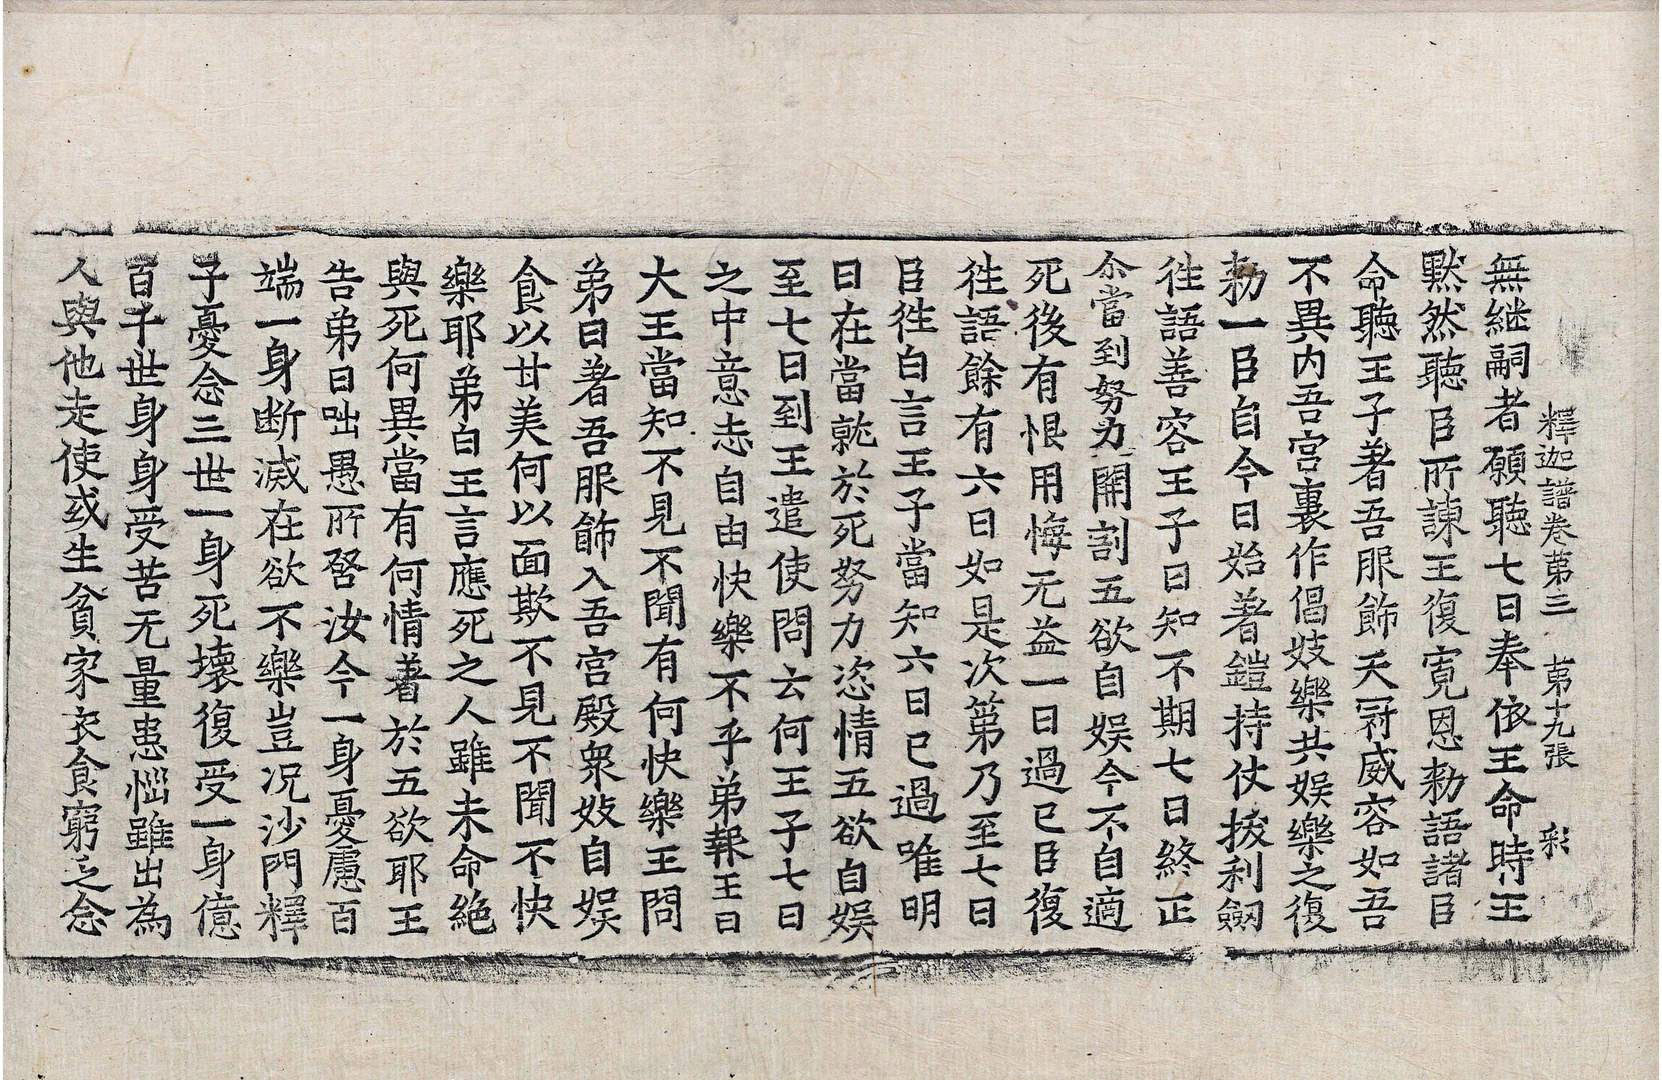 釋迦譜卷苐三　苐十九張　彩
無継嗣者願聽七日奉依王命時王
黙然聽臣所諫王復寛恩勑語諸臣
命聽王子著吾服飾天冠威容如吾
不異内吾宫裏作倡妓樂共娱樂之復
勑一臣自今日始著鎧持仗拔利劔
徃語善容王子曰知不期七日終正
尒當到努力開割五欲自娱今不自適
死後有恨用悔无益一日過已臣復
徃語餘有六日如是次第乃至七日
臣徃白言王子當知六日已過唯明
日在當就於死努力恣情五欲自娱
至七日到王遣使問云何王子七日
之中意志自由快樂不乎弟報王曰
大王當知不見不聞有何快樂王問
弟曰著吾服飾入吾宫殿衆妓自娱
食以甘美何以面欺不見不聞不快
樂耶弟白王言應死之人雖未命絶
與死何異當有何情著於五欲耶王
告弟曰咄愚所啓汝今一身憂慮百
端一身断滅在欲不樂豈况沙門釋
子憂念三世一身死壞復受一身億
百千世身身受苦无量患惱雖出為
人與他走使或生貧家衣食窮乏念